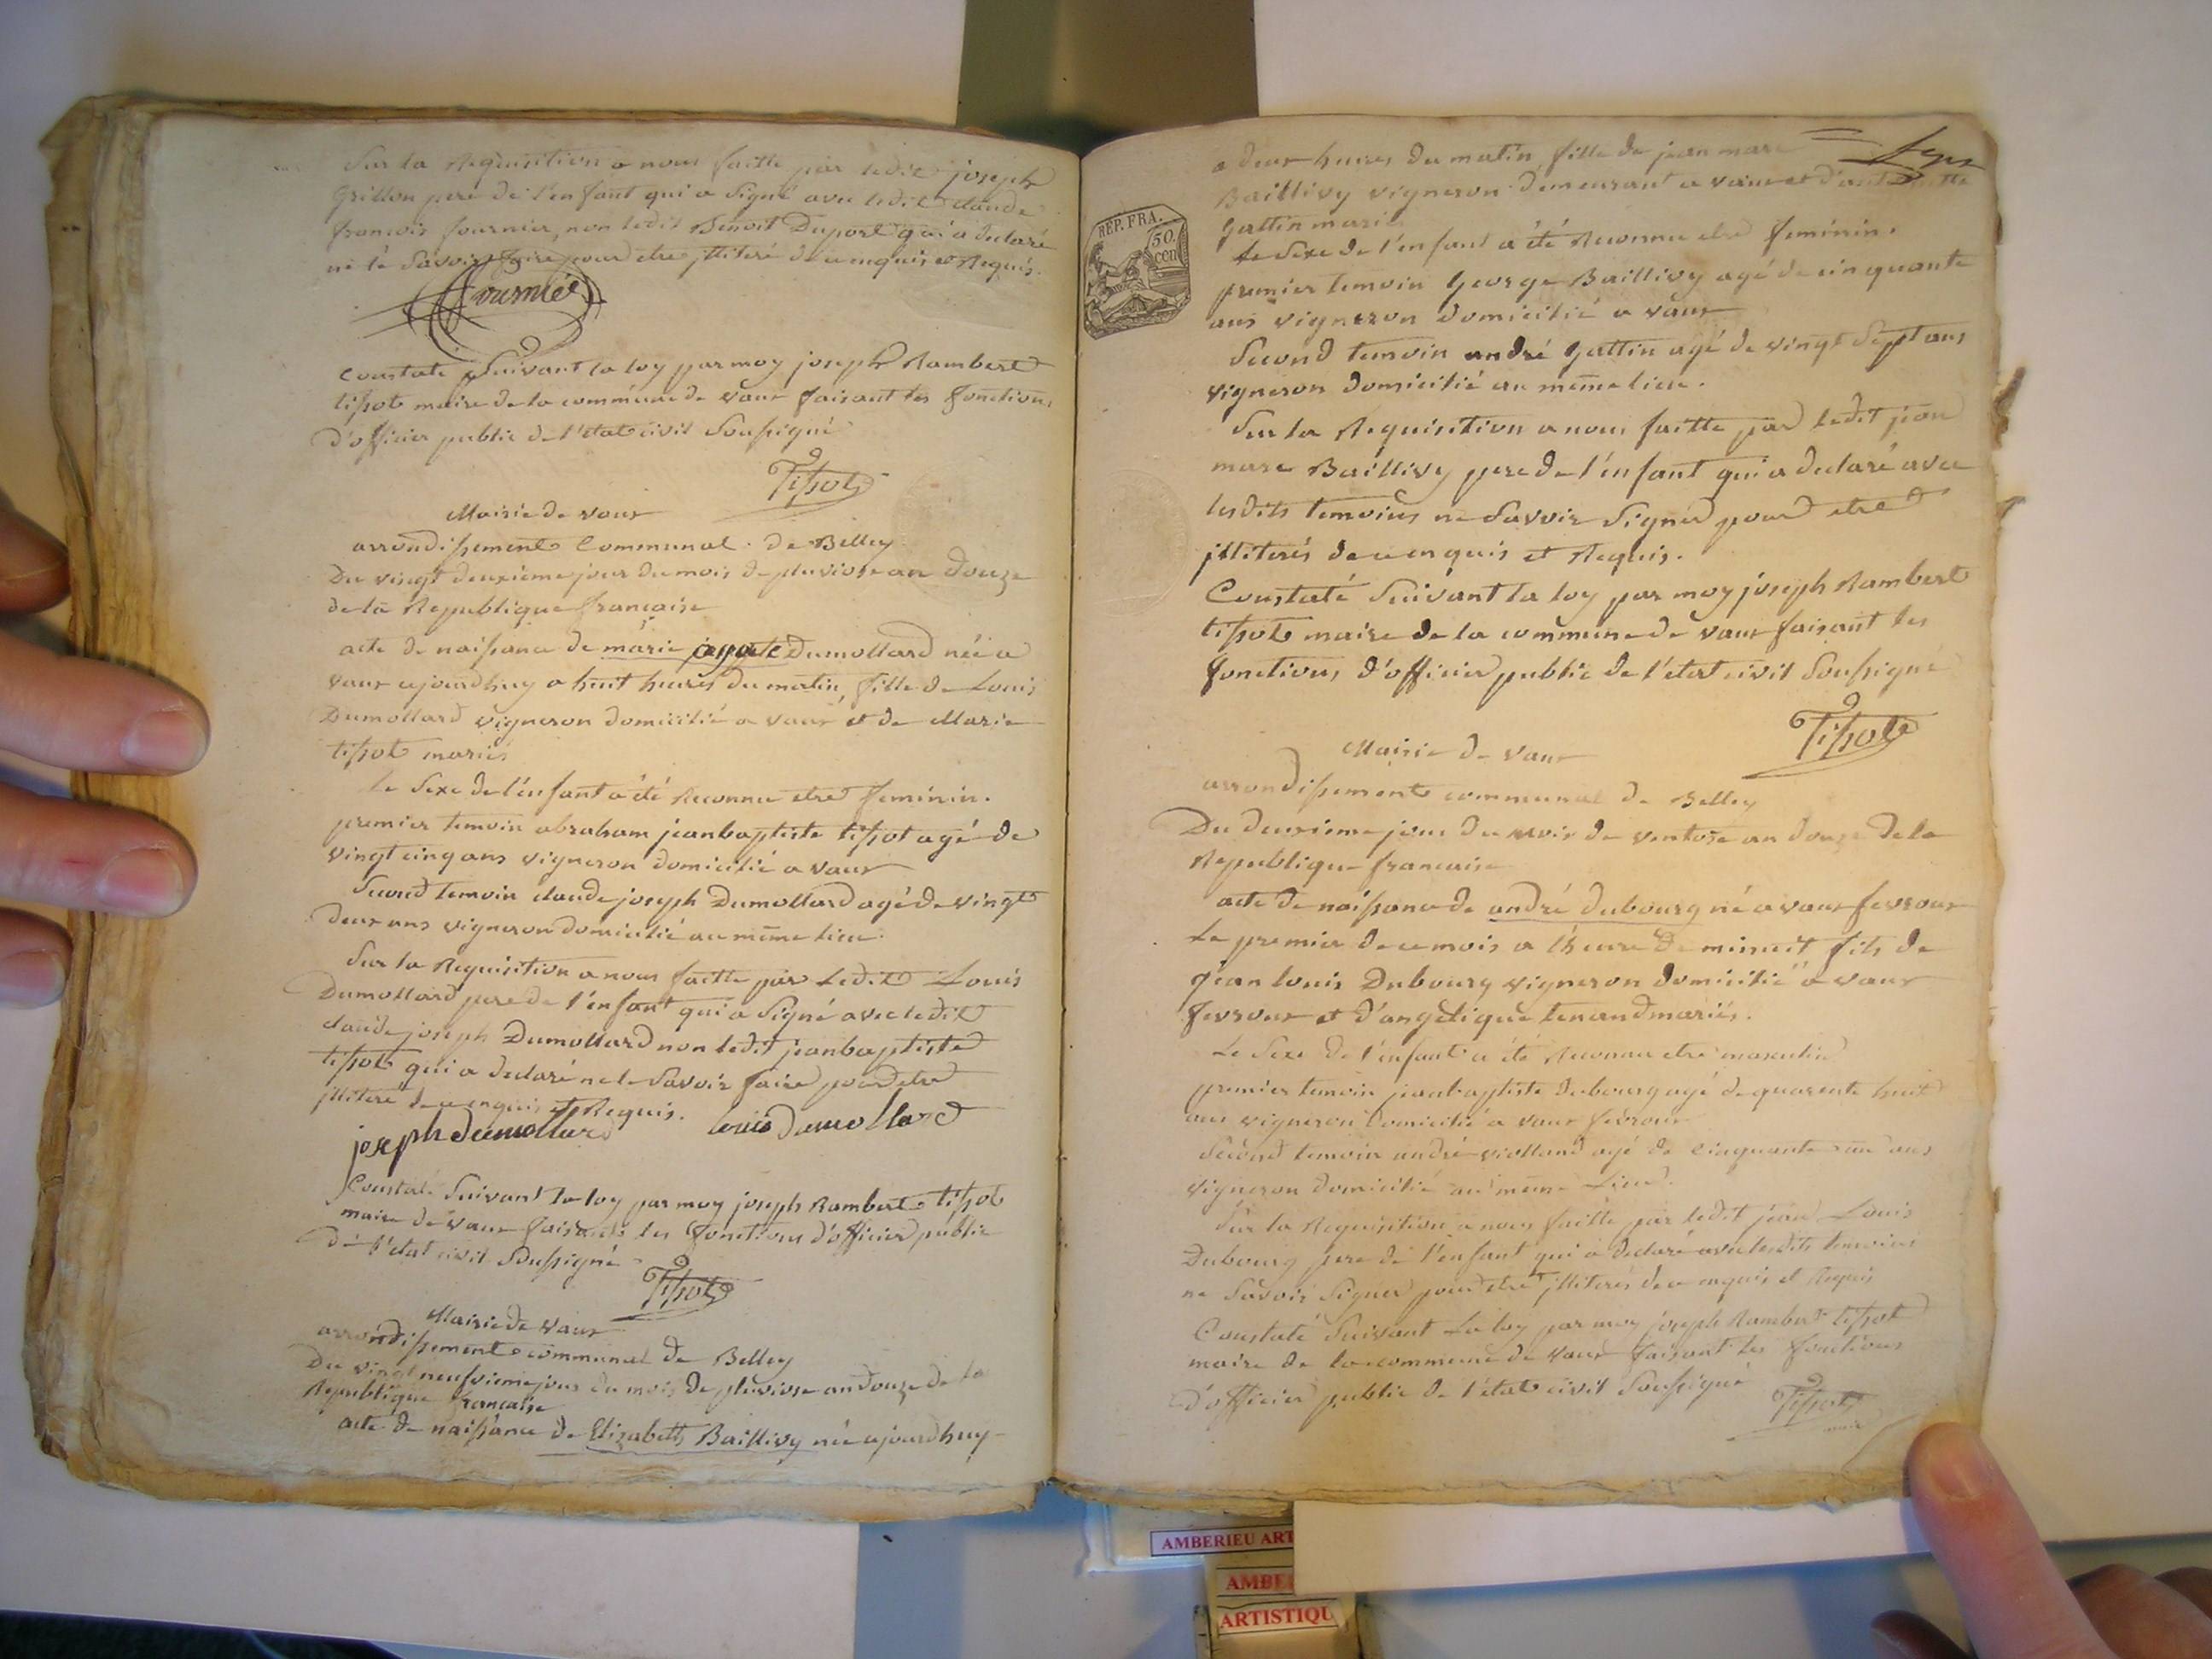 Sur la Requisition a nous faitte par ledit joseph
Grillon pere de l'enfant qui a Signé avec ledit claude
francois fournier, non ledit Benoit Duport qui a declaré
ne le Savoir faire pour etre jlliteré de ce enquis et Requis.
fournier
Constaté Suivant la loy par moy joseph Rambert
tissot maire de la commune de vaux faisant les fonctions
d'officier public de l'etat civil Soussigné
Tissot
Mairie de vaux
arrondissement Communal de Belley
Du vingt deuxieme jour du mois de pluviose an douze
de la Republique francaise
acte de naissance de marie Dumollard née a
vaux ajourdhuy a huit heures du matin, fille de Louis
Dumollard vigneron domicilié a vaux et de Marie
tissot mariés
le Sexe de l'enfant a été Reconnu etre feminin.
premier temoin abraham jeanbaptiste tissot agé de
vingt cinq ans vigneron domicilié a vaux
Second temoin claude joseph Dumollard agé de vingt
deux ans vigneron domicilié au même lieu.
Sur la Requisition a nous faitte par Ledit Louis
Dumollard pere de l'enfant qui a Signé avec ledit
claude joseph Dumollard non ledit jeanbaptiste
tissot qui a declaré ne le Savoir faire pour etre
jlliteré de ce enquis et Requis.
joseph dumollard louis dumollard
Constaté Suivant la loy par moy joseph Rambert tissot
maire de vaux faisant les fonctions d'officier public
de l'etat civil Soussigné
Tissot
Mairie de vaux
arrondissement communal de Belley
Du vingt neufvieme jour du mois de pluviose an douze de la
Republique francaise
acte de naissance de Elizabeth Baillivy née ajourdhuy
a deux heures du matin, fille de jean marc
Baillivy vigneron demeurant a vaux et d'antoinette
gattin mariés
REP. FRA.
50.
cen
le Sexe de l'enfant a été Reconnu etre feminin.
premier temoin George Baillivy agé de cinquante
ans vigneron domicilié a vaux
Second temoin andré gattin agé de vingt Sept ans
vigneron domicilié au même lieu.
Sur la Requisition a nous faitte par ledit jean
marc Baillivy pere de l'enfant qui a declaré avec
lesdits temoins ne Savoir Signer pour etre
jlliterés de ce enquis et Requis.
Constaté Suivant la loy par moy joseph Rambert
tissot maire de la commune de vaux faisant les
fonctions d'officier public de l'etat civil Soussigné
Tissot
Mairie de vaux
arrondissement communal de Belley
Du deuxieme jour du mois de ventose an douze de la
Republique francaise
acte de naissance de andré dubourg né a vaux fevroux
le premier de ce mois a l'heure de minuit fils de
jean louis Dubourg vigneron domicilié a vaux
fevroux et d'angelique tenand mariés.
Le Sexe de l'enfant a été Reconnu etre masculin
premier temoin jeanbaptiste dubourg agé de quarente huit
ans vigneron domicilié a vaux fevroux
Second temoin andré violland agé de cinquante un ans
vigneron domicilié au même Lieu.
Sur la Requisition a nous faitte par ledit jean Louis
Dubourg pere de l'enfant qui a declaré avec lesdits temoins
ne Savoir Signer pour etre jlliterés de ce enquis et Requis
Constaté Suivant La loy par moy joseph Rambert tissot
maire de la commune de vaux faisant les fonctions
d'officier public de l'etat civil Soussigné
Tissot
maire
AMBERIEU ART
AMBE
ARTISTIQU